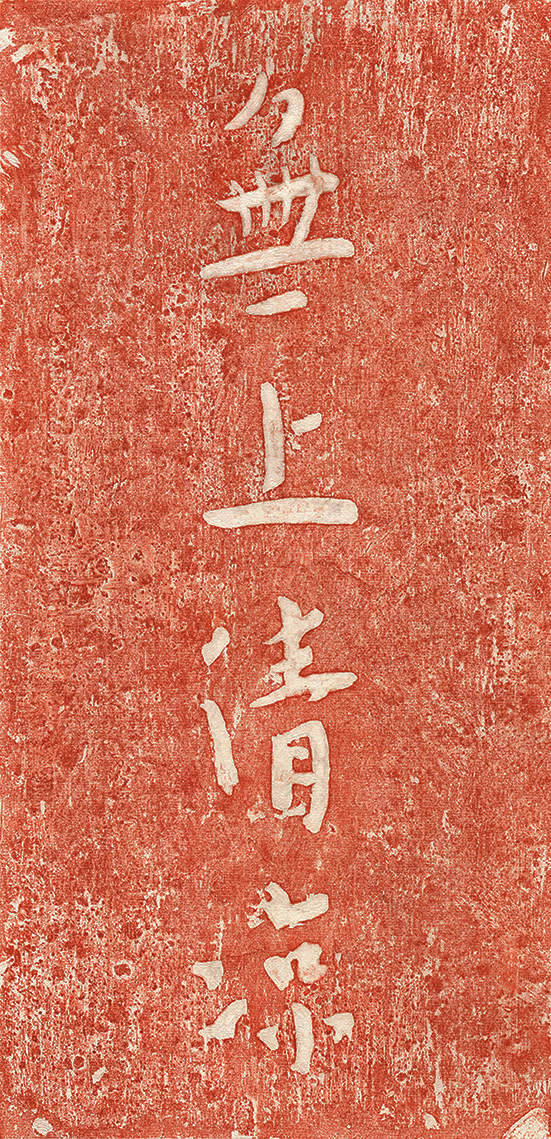 無上清凉